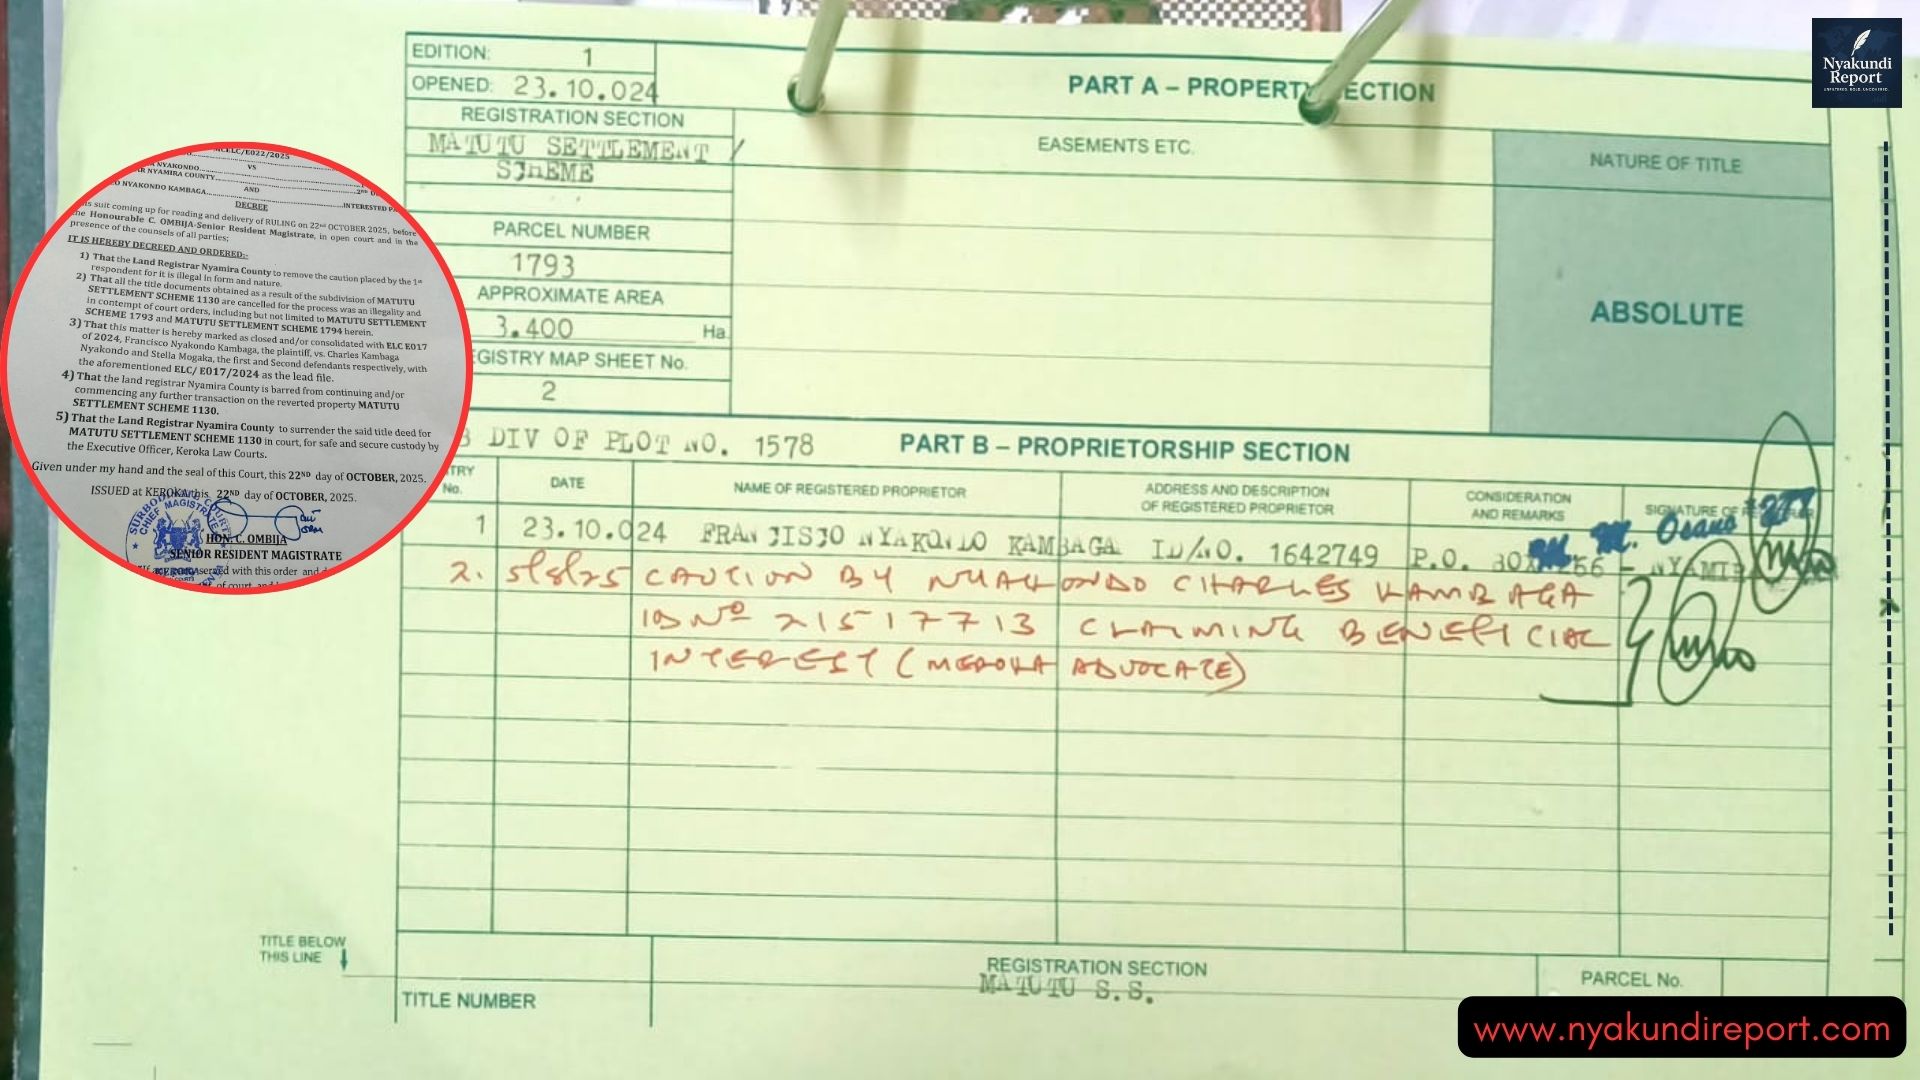 EDITION: 1
OPENED: 23.10.024
PART A – PROPERTY SECTION
Nyakundi
Report
REGISTRATION SECTION
MATUTU SETTLEMENT /
SCHEME
EASEMENTS ETC.
NATURE OF TITLE
PARCEL NUMBER
1793
APPROXIMATE AREA
3.400 Ha.
REGISTRY MAP SHEET No.
2
ABSOLUTE
DIV OF PLOT NO. 1578
PART B – PROPRIETORSHIP SECTION
No.
DATE
NAME OF REGISTERED PROPRIETOR
ADDRESS AND DESCRIPTION
OF REGISTERED PROPRIETOR
CONSIDERATION
AND REMARKS
SIGNATURE OF
M. Osano
1 23.10.024 FRANCISCO NYAKONDO KAMBAGA ID/NO. 1642749 P.O. BOX
2. 5/8/25 CAUTION BY NYAKONDO CHARLES KAMBAGA
ID Nº 21517713 CLAIMING BENEFICIAL
INTEREST (MEROKA ADVOCATE)
TITLE BELOW
THIS LINE
TITLE NUMBER
REGISTRATION SECTION
MATUTU S.S.
PARCEL No.
www.nyakundireport.com
VS
NYAMIRA COUNTY
AND
NYAKONDO KAMBAGA INTERESTED
DECREE
suit coming up for reading and delivery of RULING on 22ND OCTOBER 2025, before
the Honourable C. OMBIJA-Senior Resident Magistrate, in open court and in the
presence of the counsels of all parties;
IT IS HEREBY DECREED AND ORDERED:-
1) That the Land Registrar Nyamira County to remove the caution placed by the 1st
respondent for it is illegal in form and nature.
2) That all the title documents obtained as a result of the subdivision of MATUTU
SETTLEMENT SCHEME 1130 are cancelled for the process was an illegality and
in contempt of court orders, including but not limited to MATUTU SETTLEMENT
SCHEME 1793 and MATUTU SETTLEMENT SCHEME 1794 herein.
3) That this matter is hereby marked as closed and/or consolidated with ELC E017
of 2024, Francisco Nyakondo Kambaga, the plaintiff, vs. Charles Kambaga
Nyakondo and Stella Mogaka, the first and Second defendants respectively, with
the aforementioned ELC/ E017/2024 as the lead file.
4) That the land registrar Nyamira County is barred from continuing and/or
commencing any further transaction on the reverted property MATUTU
SETTLEMENT SCHEME 1130.
5) That the Land Registrar Nyamira County to surrender the said title deed for
MATUTU SETTLEMENT SCHEME 1130 in court, for safe and secure custody by
the Executive Officer, Keroka Law Courts.
Given under my hand and the seal of this Court, this 22ND day of OCTOBER, 2025.
ISSUED at KEROKA this 22ND day of OCTOBER, 2025.
HON. C. OMBIJA
SENIOR RESIDENT MAGISTRATE
served with this order and